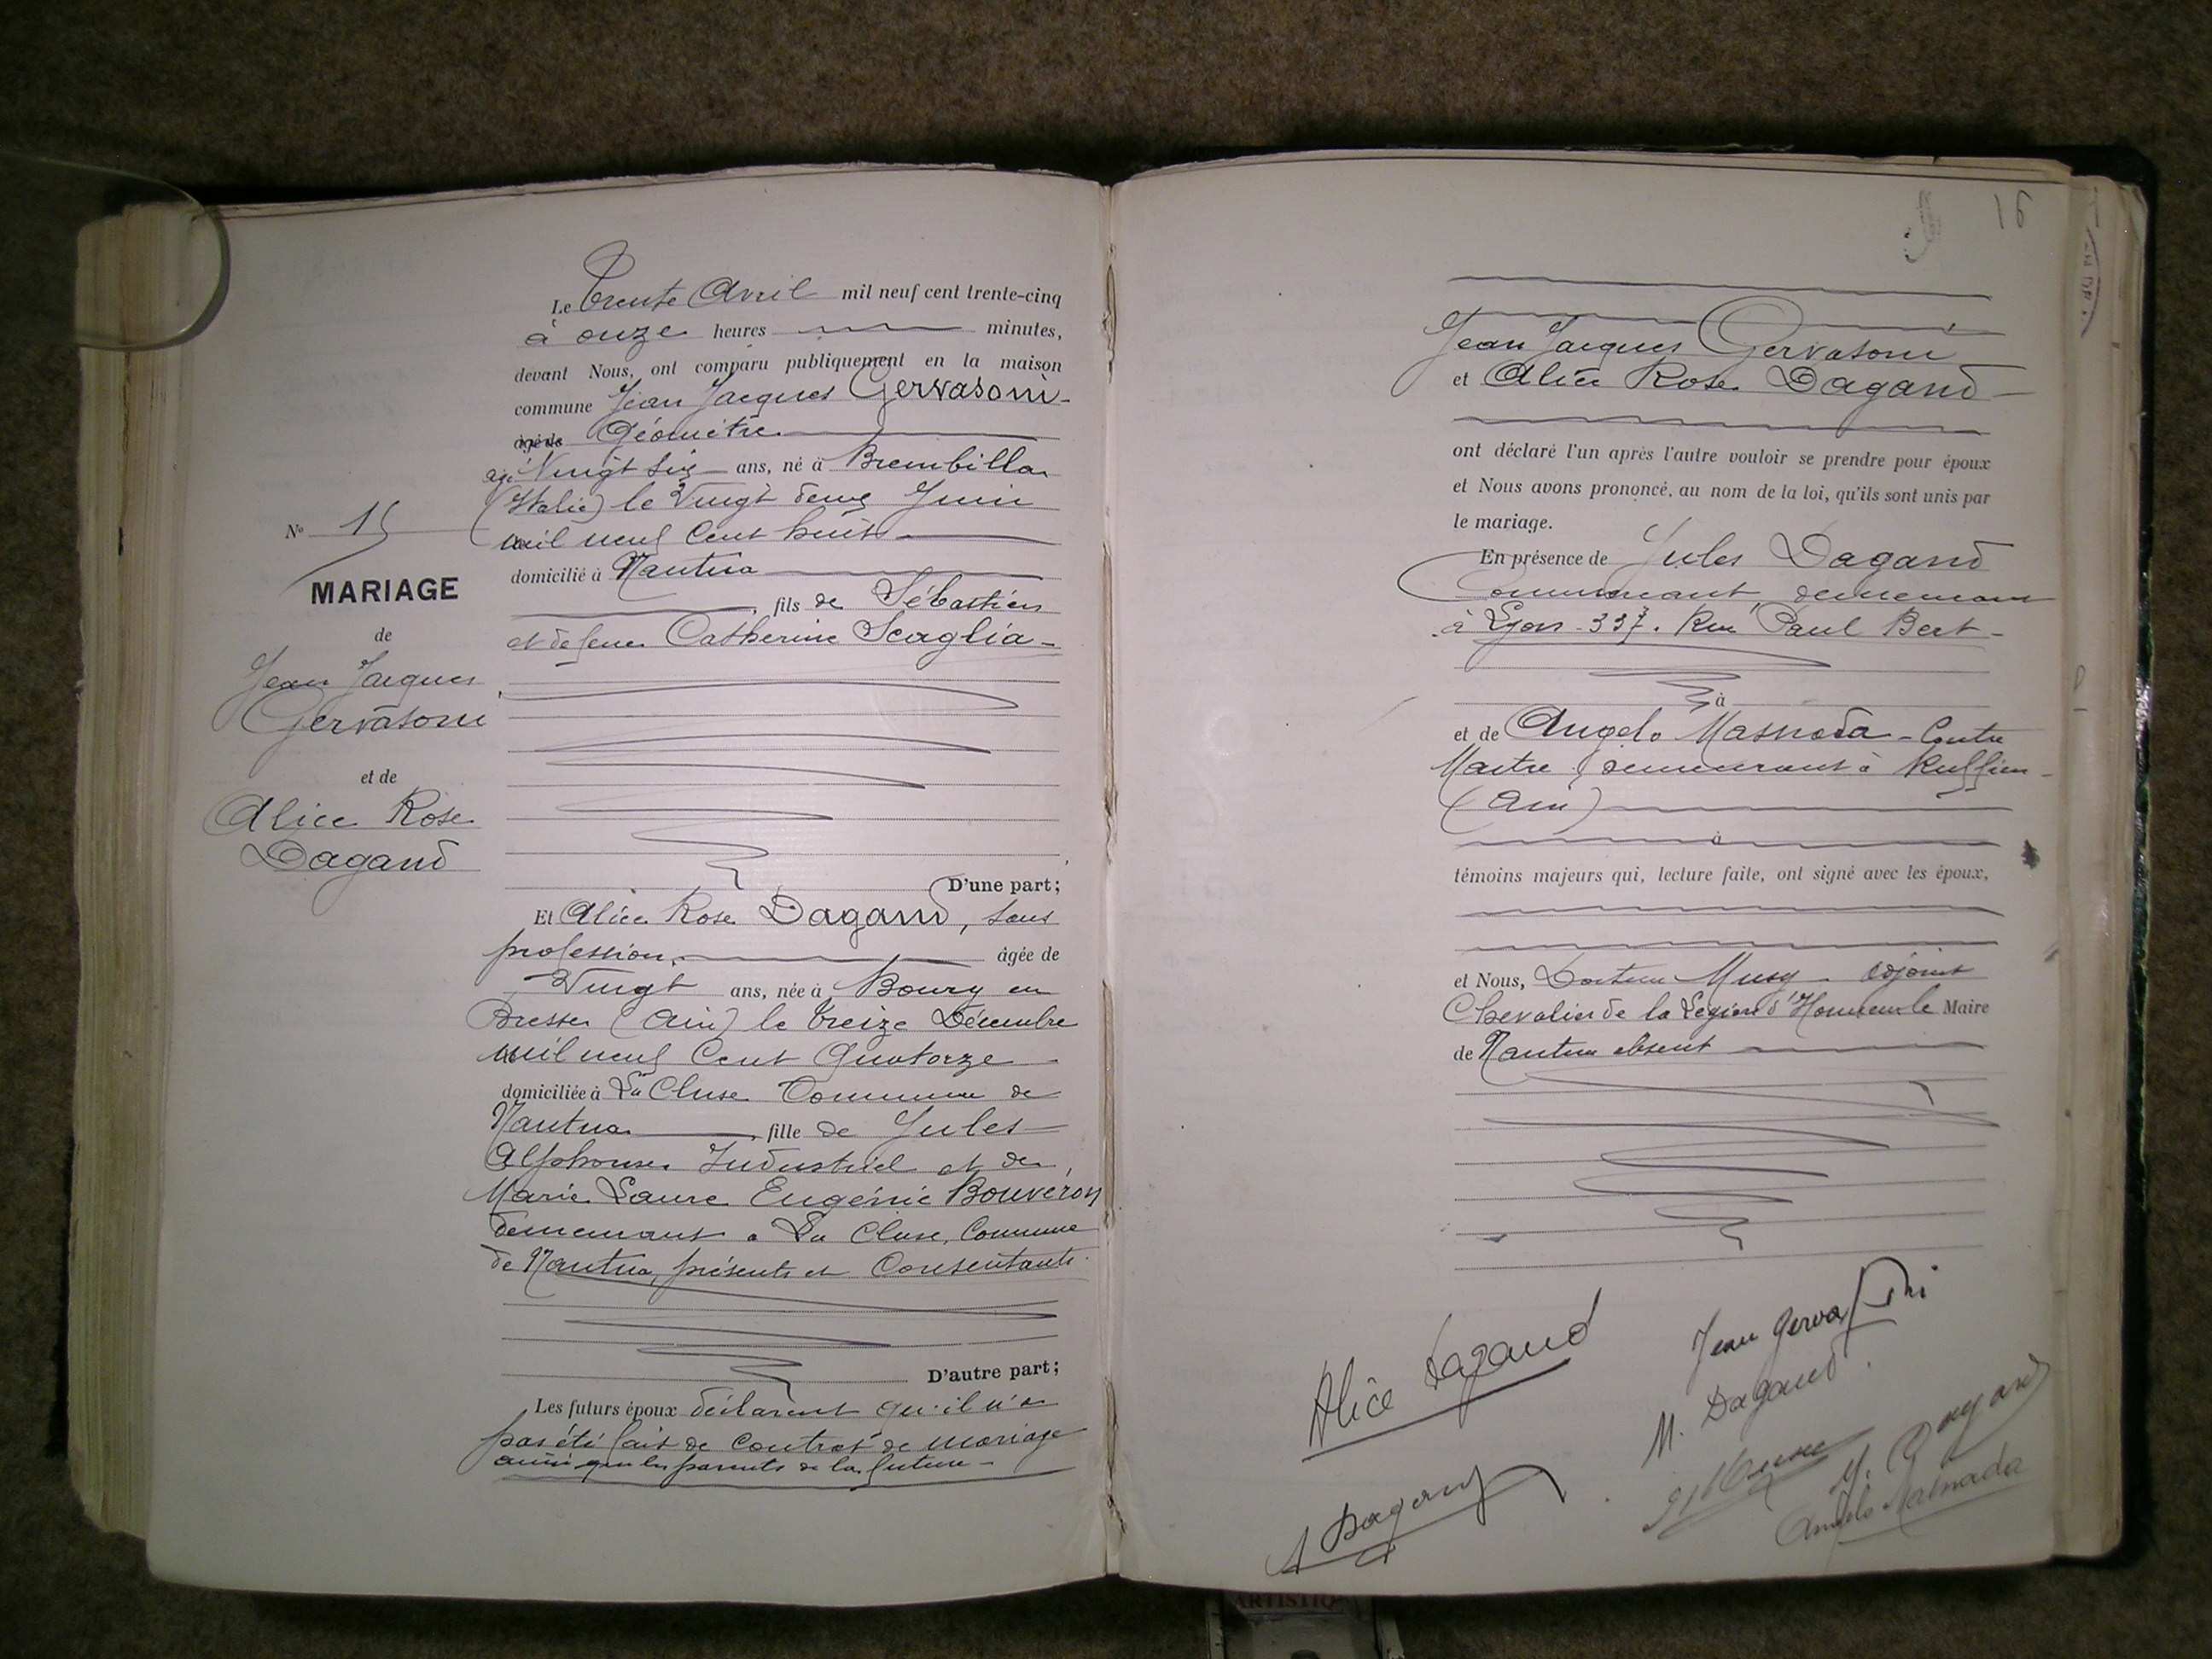 Le trente Avril mil neuf cent trente-cinq
à onze heures minutes,
devant Nous, ont comparu publiquement en la maison
commune Jean Jacques Gervasoni
Géomètre
agé Vingt six ans, né à Brembilla
(Italie) le Vingt deux Juin
mil neuf Cent huit
domicilié à Nantua
fils de Sébastien
et de feue Catherine Scaglia
N° 15
MARIAGE
de
Jean Jacques
Gervasoni
et de
Alice Rose
Dagand
D'une part;
Et Alice Rose Dagand, sans
profession, âgée de
Vingt ans, née à Bourg en
Bresse (Ain) le treize Décembre
mil neuf Cent Quatorze
domiciliée à La Cluse Commune de
Nantua, fille de Jules
Alphonse Industriel et de
Marie Laure Eugénie Bouveron
demeurant a La Cluse, Commune
de Nantua, présents et Consentants
D'autre part;
Les futurs époux déclarent qu'il n'a
pas été fait de Contrat de mariage
ainsi que les parents de la future
16
Jean Jacques Gervasoni
et Alice Rose Dagand
ont déclaré l'un après l'autre vouloir se prendre pour époux
et Nous avons prononcé, au nom de la loi, qu'ils sont unis par
le mariage.
En présence de Jules Dagand
demeurant
à Lyon 337. Rue Paul Bert
à
et de Angelo Masnada - Contre
Maitre demeurant à Ruffieu
(Ain)
à
témoins majeurs qui, lecture faite, ont signé avec les époux,
et Nous, Docteur Musy adjoint
Chevalier de la Légion d'Honneur le Maire
de Nantua absent
Alice Dagand
Jean Gervasoni
M. Dagand
A Dagand
Angelo Masnada
ARTISTIQ